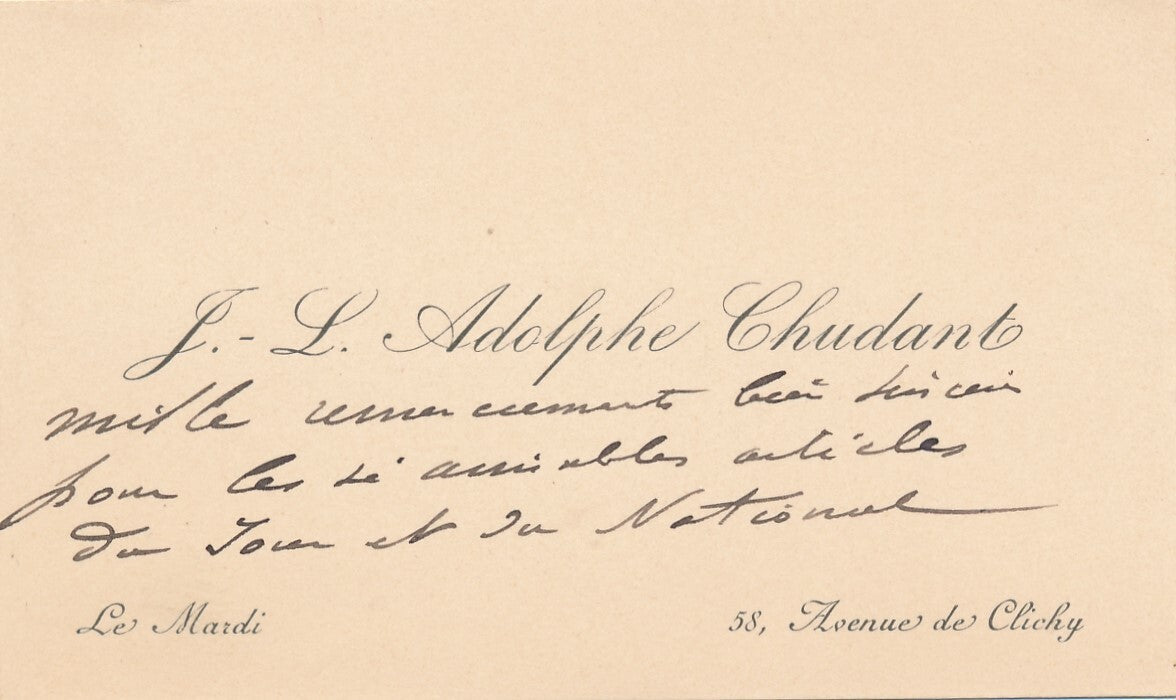 J.-L. Adolphe Chudant
mille remerciements bien sincères
pour les si aimables articles
du Jour et du National
Le Mardi
58, Avenue de Clichy